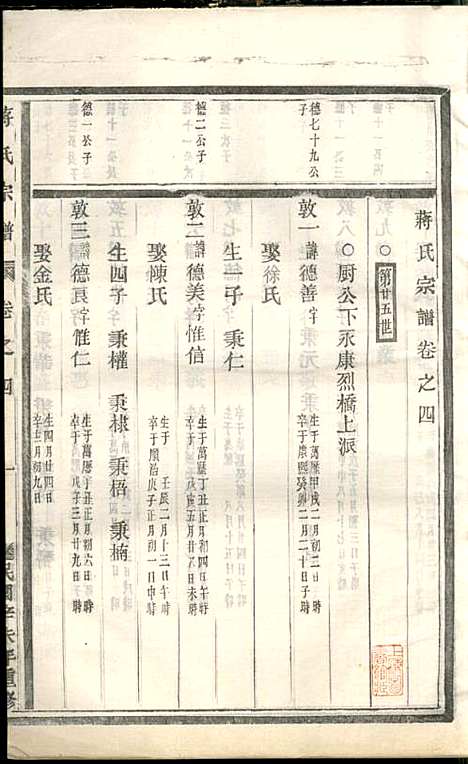 蔣氏宗譜卷之四
第廿五世
〇厨公下永康烈橋上派
德七十九公子
敦一諱德善字
生于萬曆甲戌二月初二日
卒于康熙癸卯二月二十日子時
娶徐氏
生一子 秉仁
德二公子
敦二諱德美字惟信
生于萬曆丁丑正月初四日午時
卒于順治庚寅五月廿八日未時
娶陳氏
生于壬辰二月十三日午時
卒于順治庚子正月初一日申時
生四子 秉權 秉棣 秉梧 秉楠
德一公子
敦三諱德良字惟仁
生于萬曆丁丑正月初六日時
卒于戊子三月廿九日時
娶金氏
生四月廿四日
卒三月初九日
蔣氏宗譜
卷之四
一
民國辛未年重修